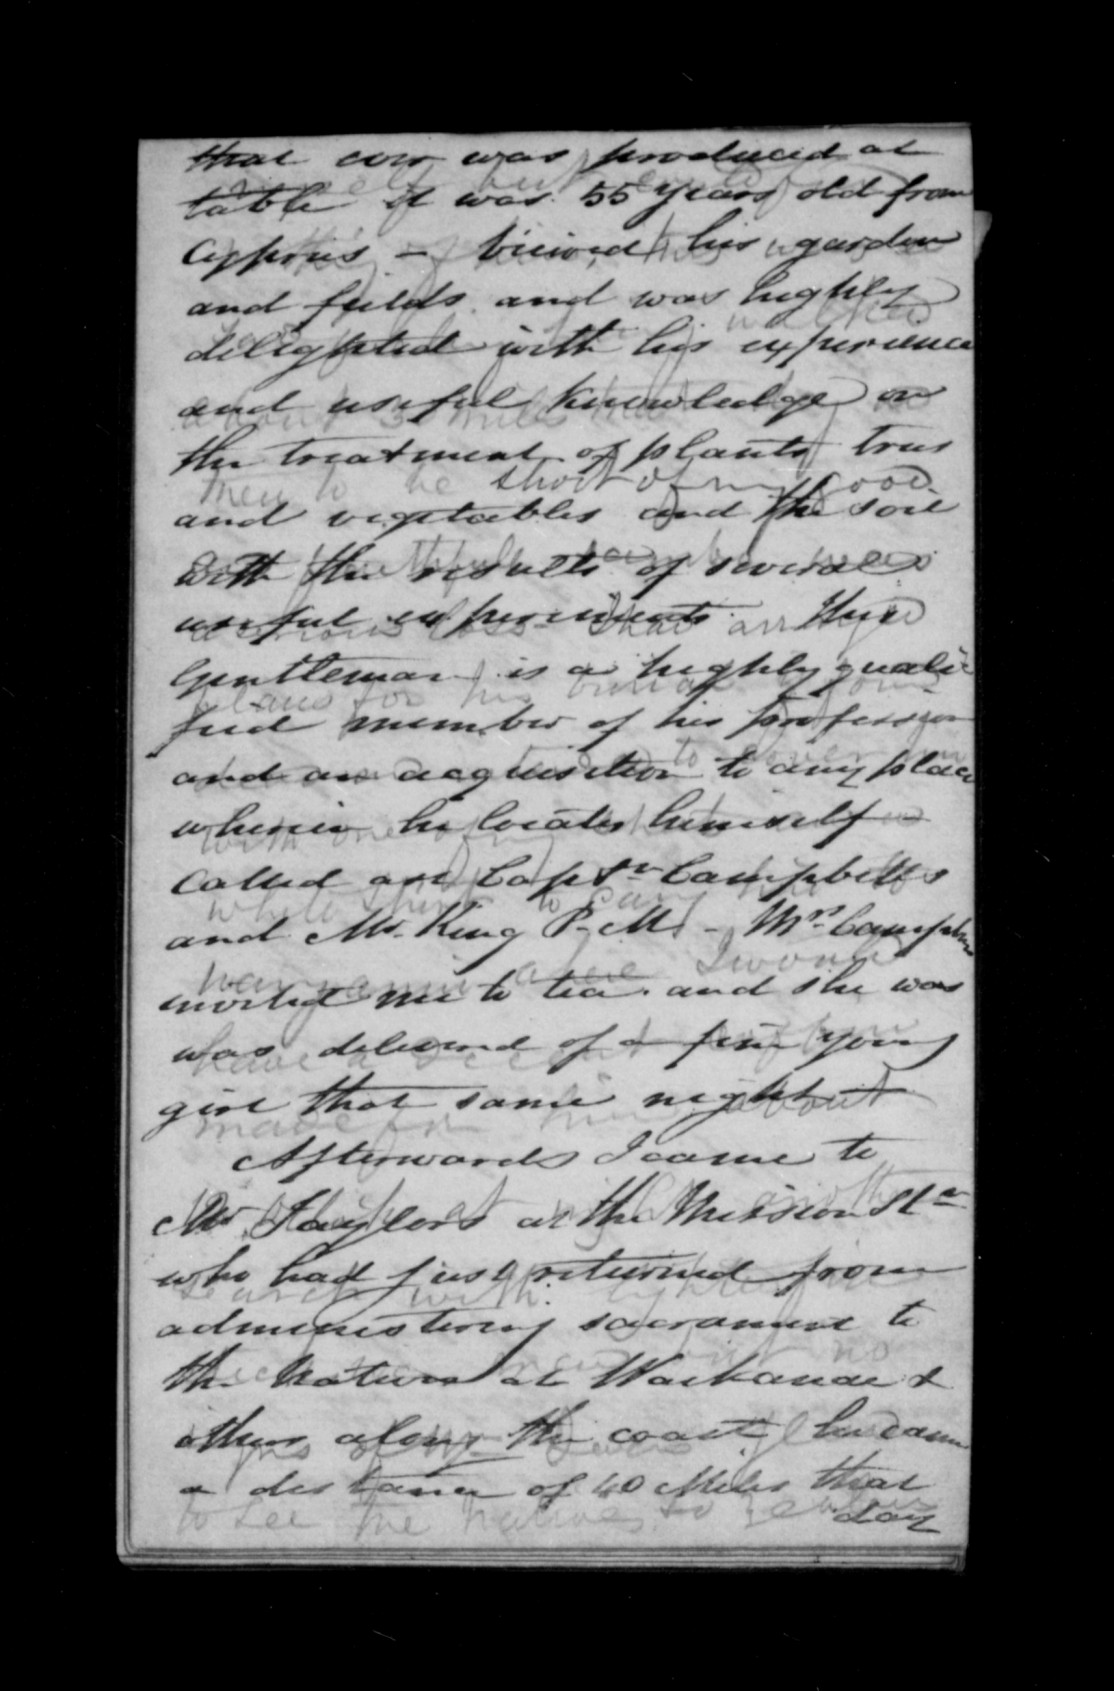 that ever was produced at
table it was 55 years old from
Cyprus - Viewed his garden
and fields and was highly
delighted with his experience
and useful knowledge on
the treatment of plants trees
and vegetables and the soil
with the results of several
useful experiments. This
Gentleman is a highly quali
fied member of his profession
and an acquisition to any place
wherein he locates himself
Called on Captn Campbells
and Mr. King P. M. - Mrs Campbell
invited me to tea and she was
was delivered of a fine young
girl that same night
Afterwards I came to
Mr Taylors at the Mission Stn
who had just returned from
administering sacrament to
the Natives at Waikanae &
others along the coast he came
a distance of 40 Miles that
day